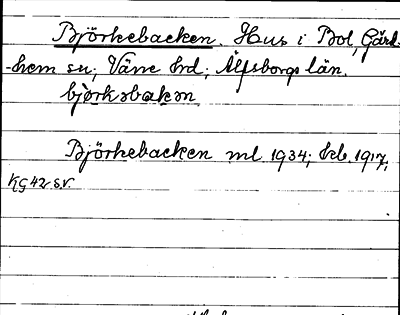 Björkebacken. Hus i Bol, Gärd-
-hem sn; Väne hrd; Älfsborgs län.
björkəbakən
Björkebacken ml 1934; hrb. 1917;
KG 42 s.v.